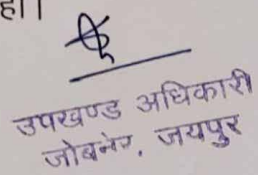 हो।
उपखण्ड अधिकारी
जोबनेर, जयपुर